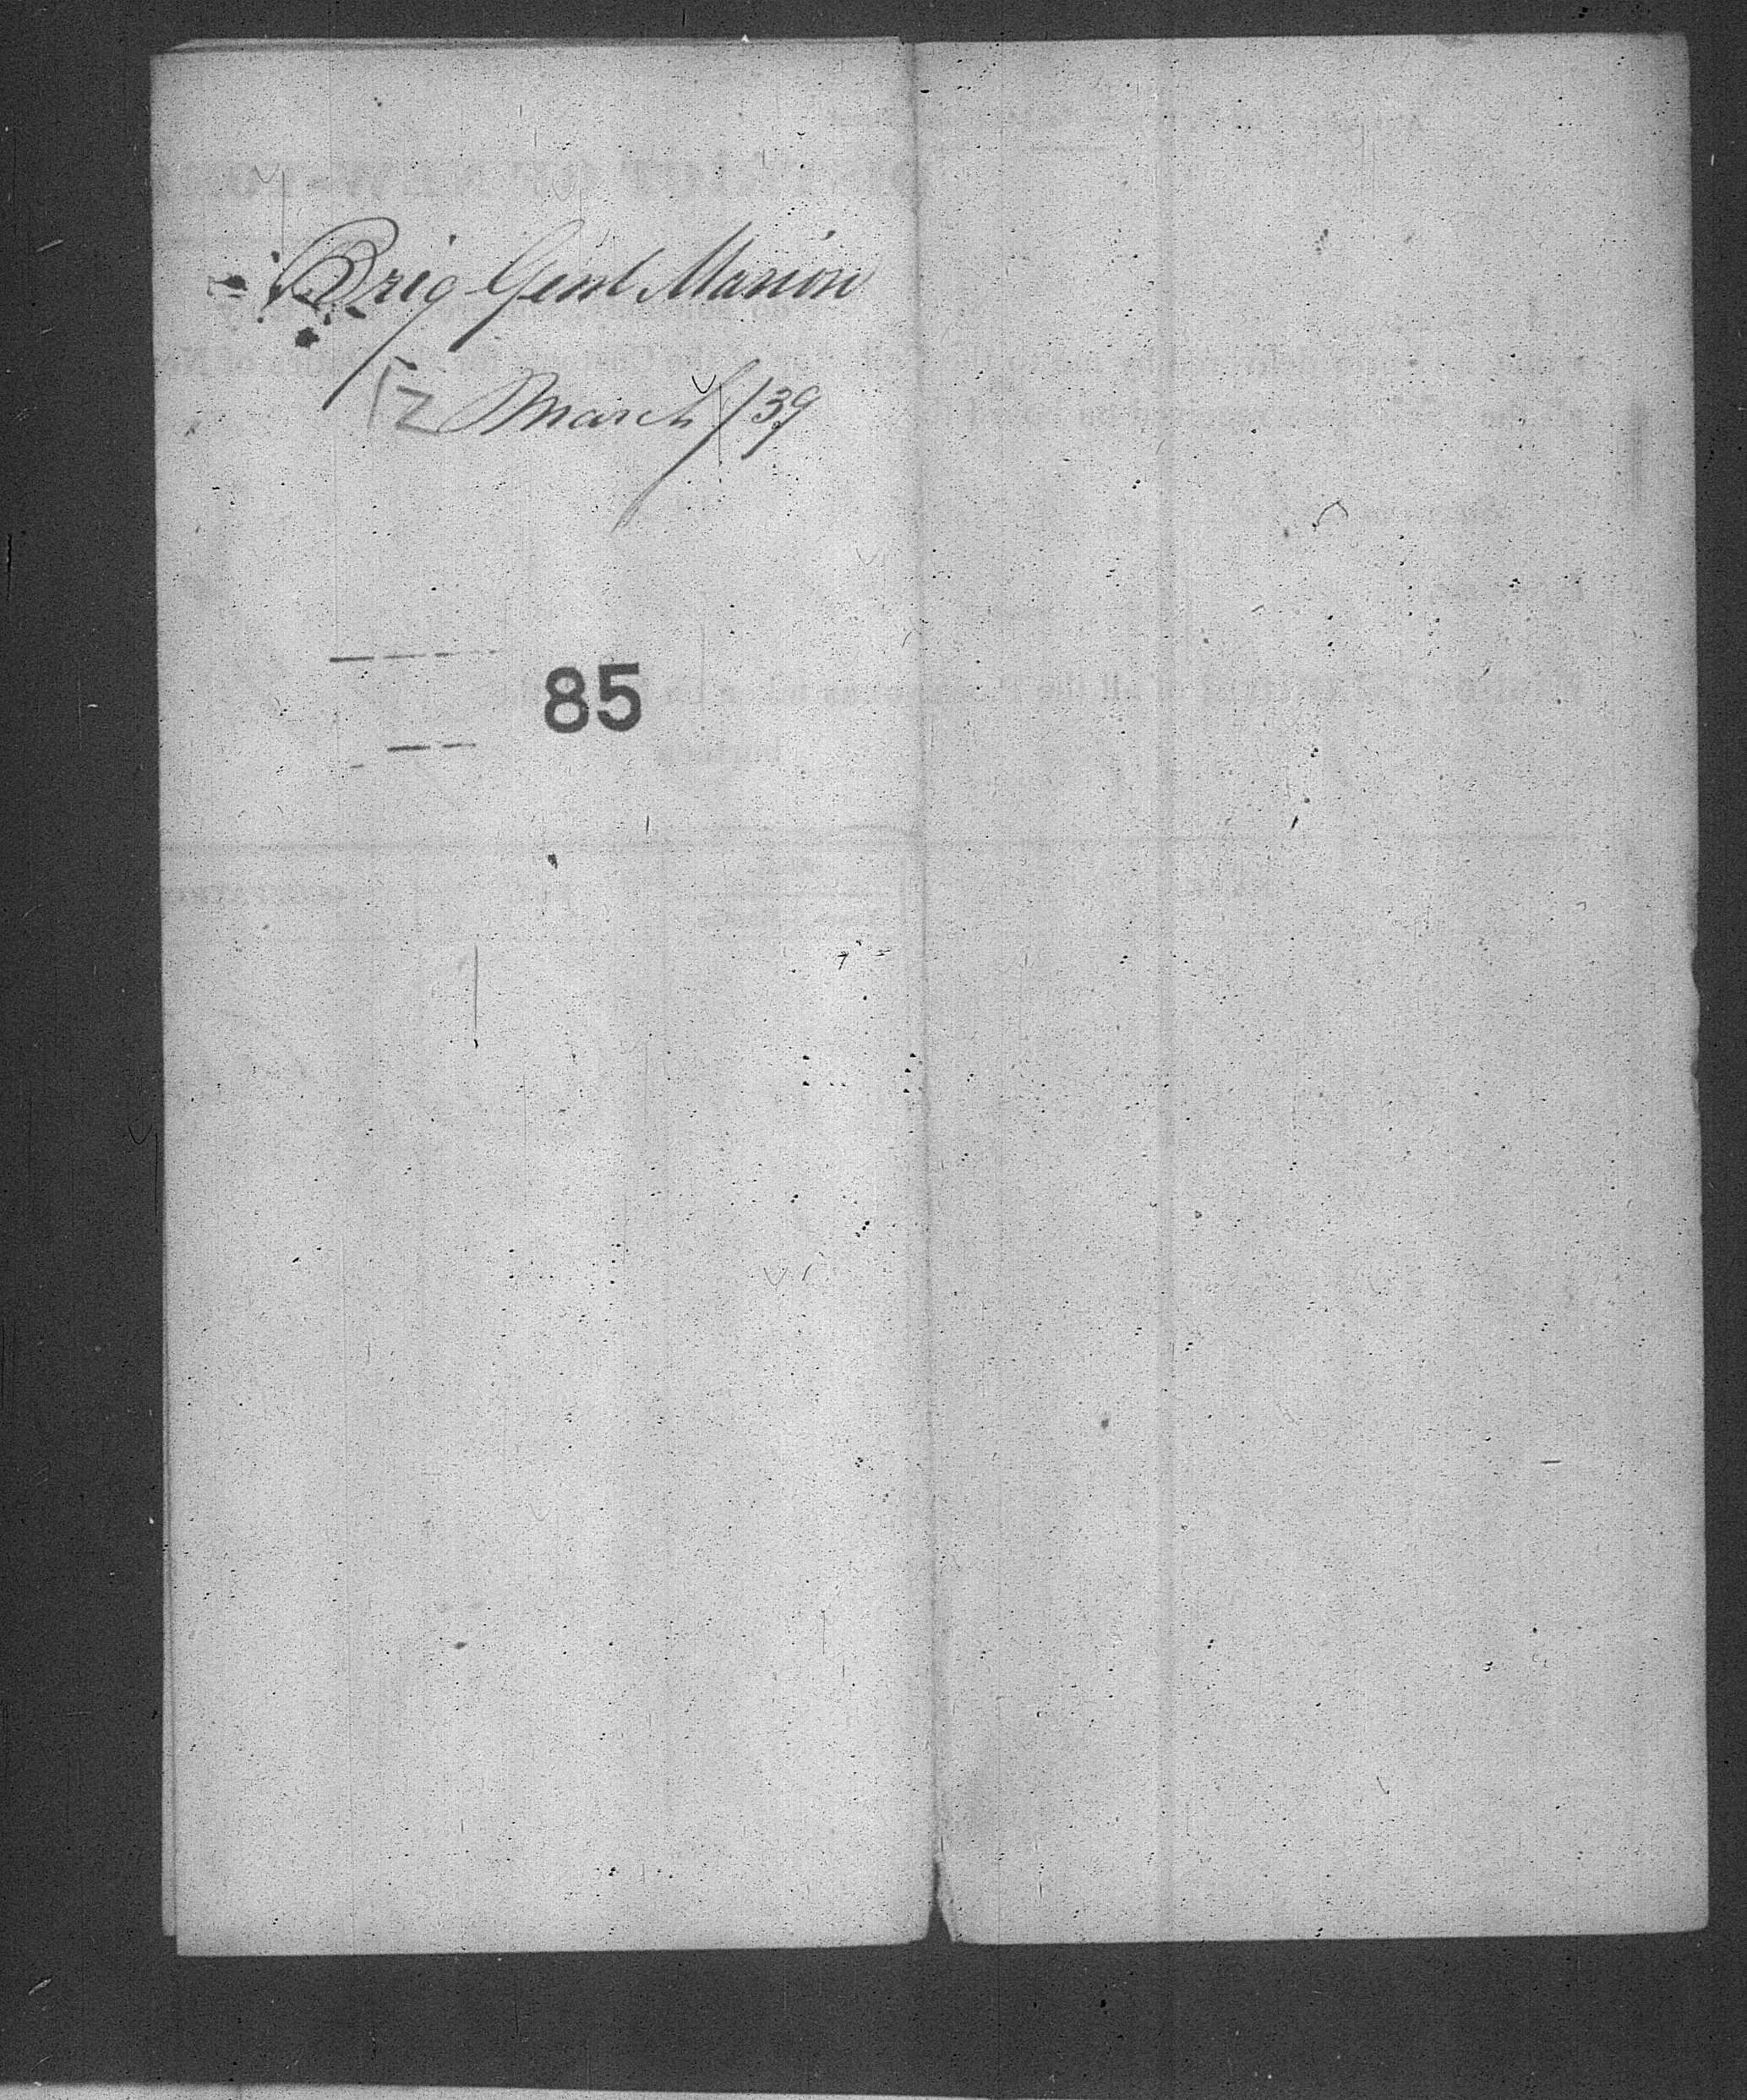 Brig Genl Marion
12 March /39
85